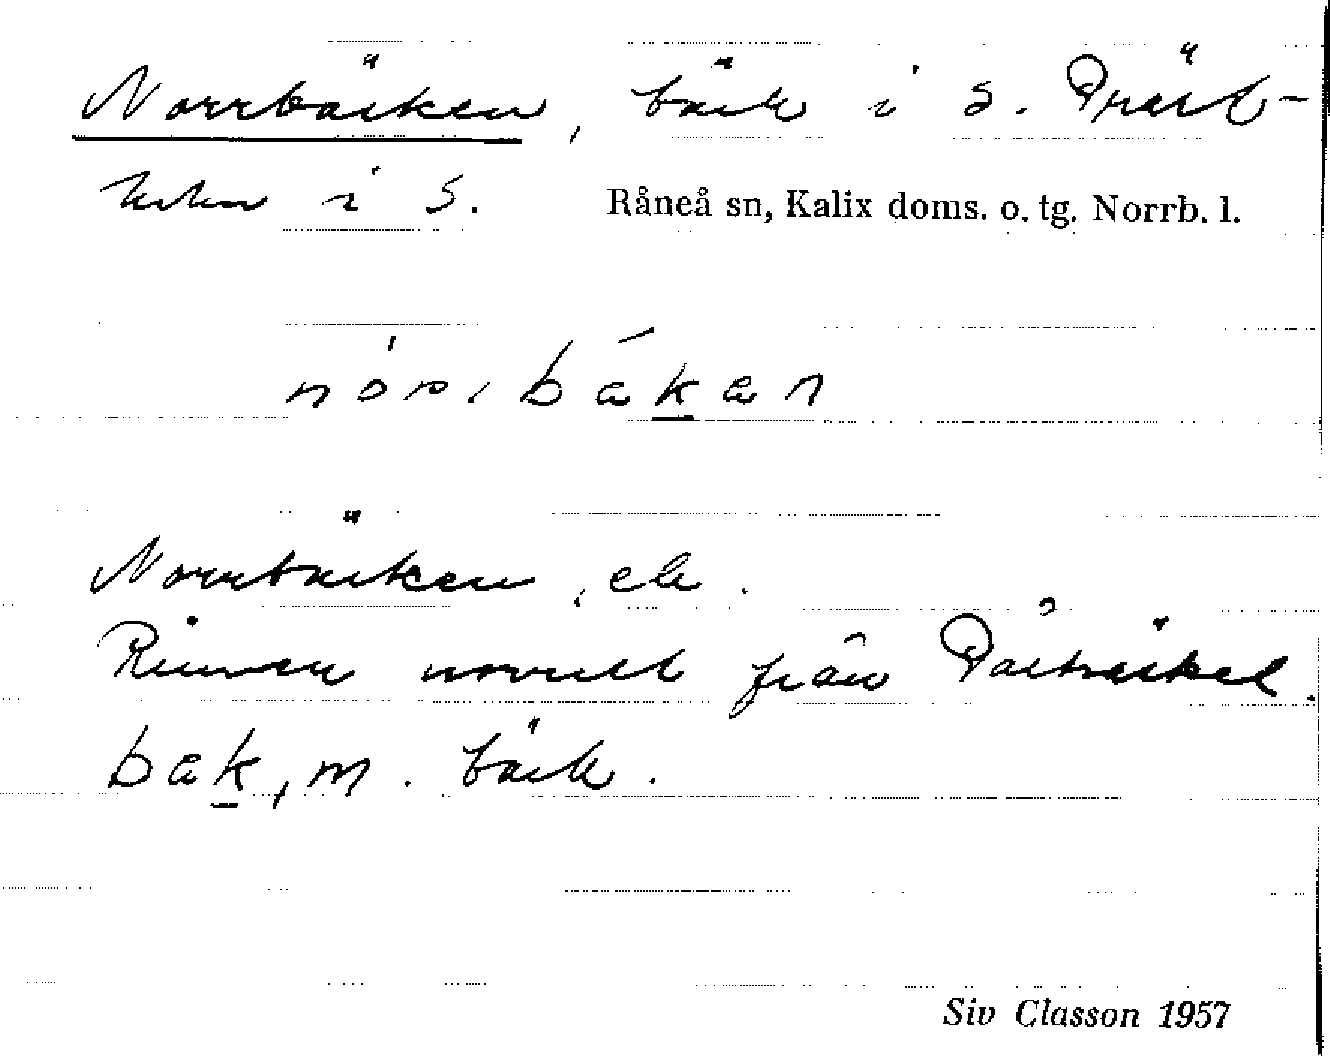 Norrbäcken, bäck i S. Präst-
holm i S. Råneå sn, Kalix doms. o. tg. Norrb. l.
nór,bǽkæn
Norrbäcken, ek.
Rinner norrut från
bæk, m. bäck.
Siv Classon 1957